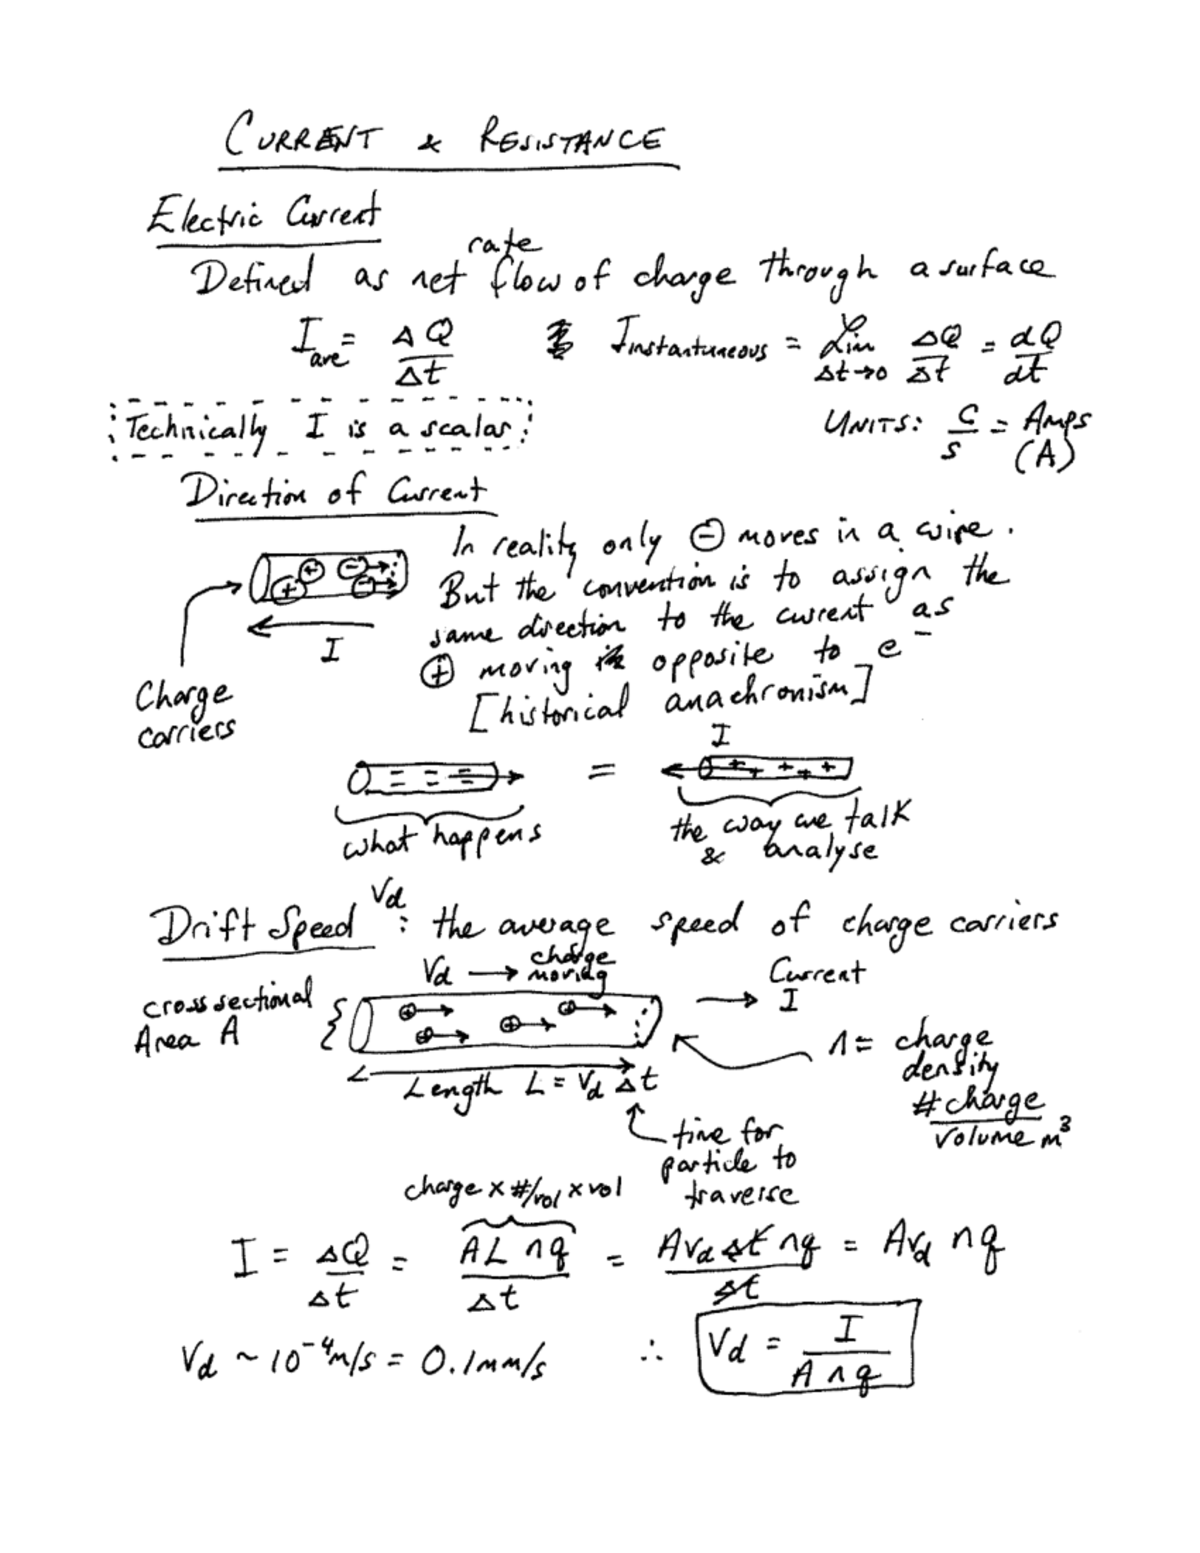 CURRENT & RESISTANCE
Electric Current
rate
Defined as net flow of charge through a surface
I_ave = ΔQ/Δt   I_instantaneous = Lim_{Δt→0} ΔQ/Δt = dQ/dt
Technically I is a scalar
UNITS: C/s = Amps (A)
Direction of Current
In reality only ⊖ moves in a wire.
But the convention is to assign the
same direction to the current as
⊕ moving opposite to e⁻
[historical anachronism]
+ + − −
I
Charge
carriers
= = =
=
I
+ + + + +
what happens
the way we talk
& analyse
Drift Speed Vd : the average speed of charge carriers
Vd → charge
moving
Current
I
cross sectional
Area A
+ + + +
Length L = Vd Δt
n = charge
density
# charge
volume m³
time for
particle to
traverse
charge x #/vol x vol
I = ΔQ/Δt = ALnq/Δt = AvdΔtnq/Δt = Avd nq
Vd ~ 10⁻⁴ m/s = 0.1mm/s   ∴ Vd = I/Anq